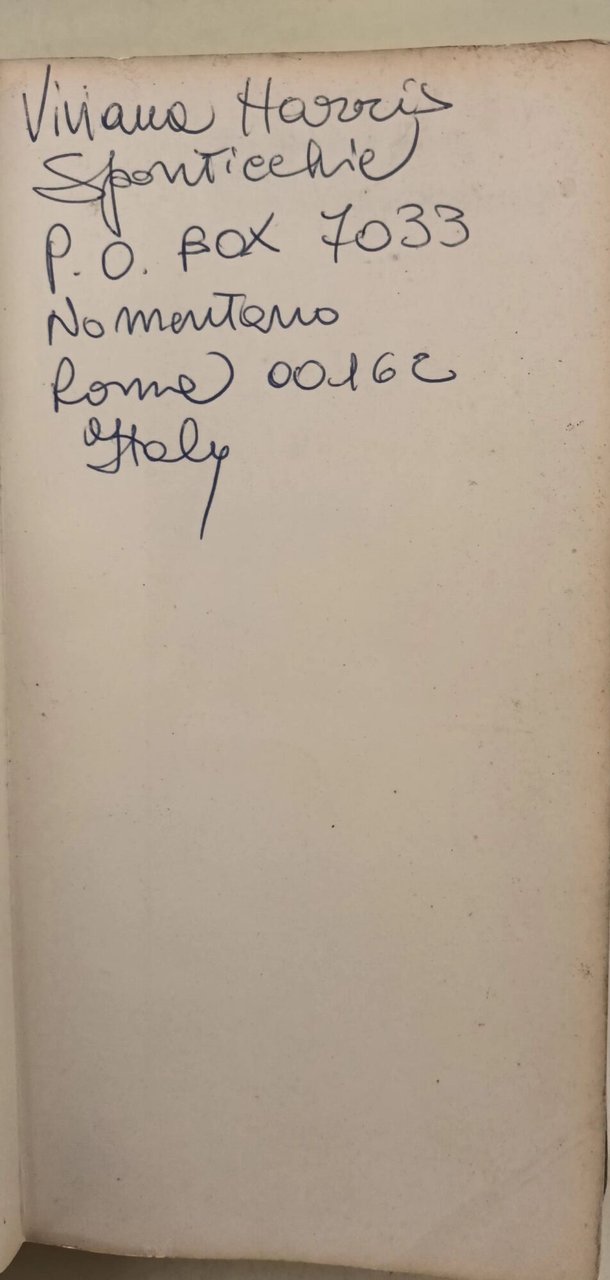 Viviana Harris
Sponticchie
P.O. BOX 7033
Nomentano
Rome 00162
Italy